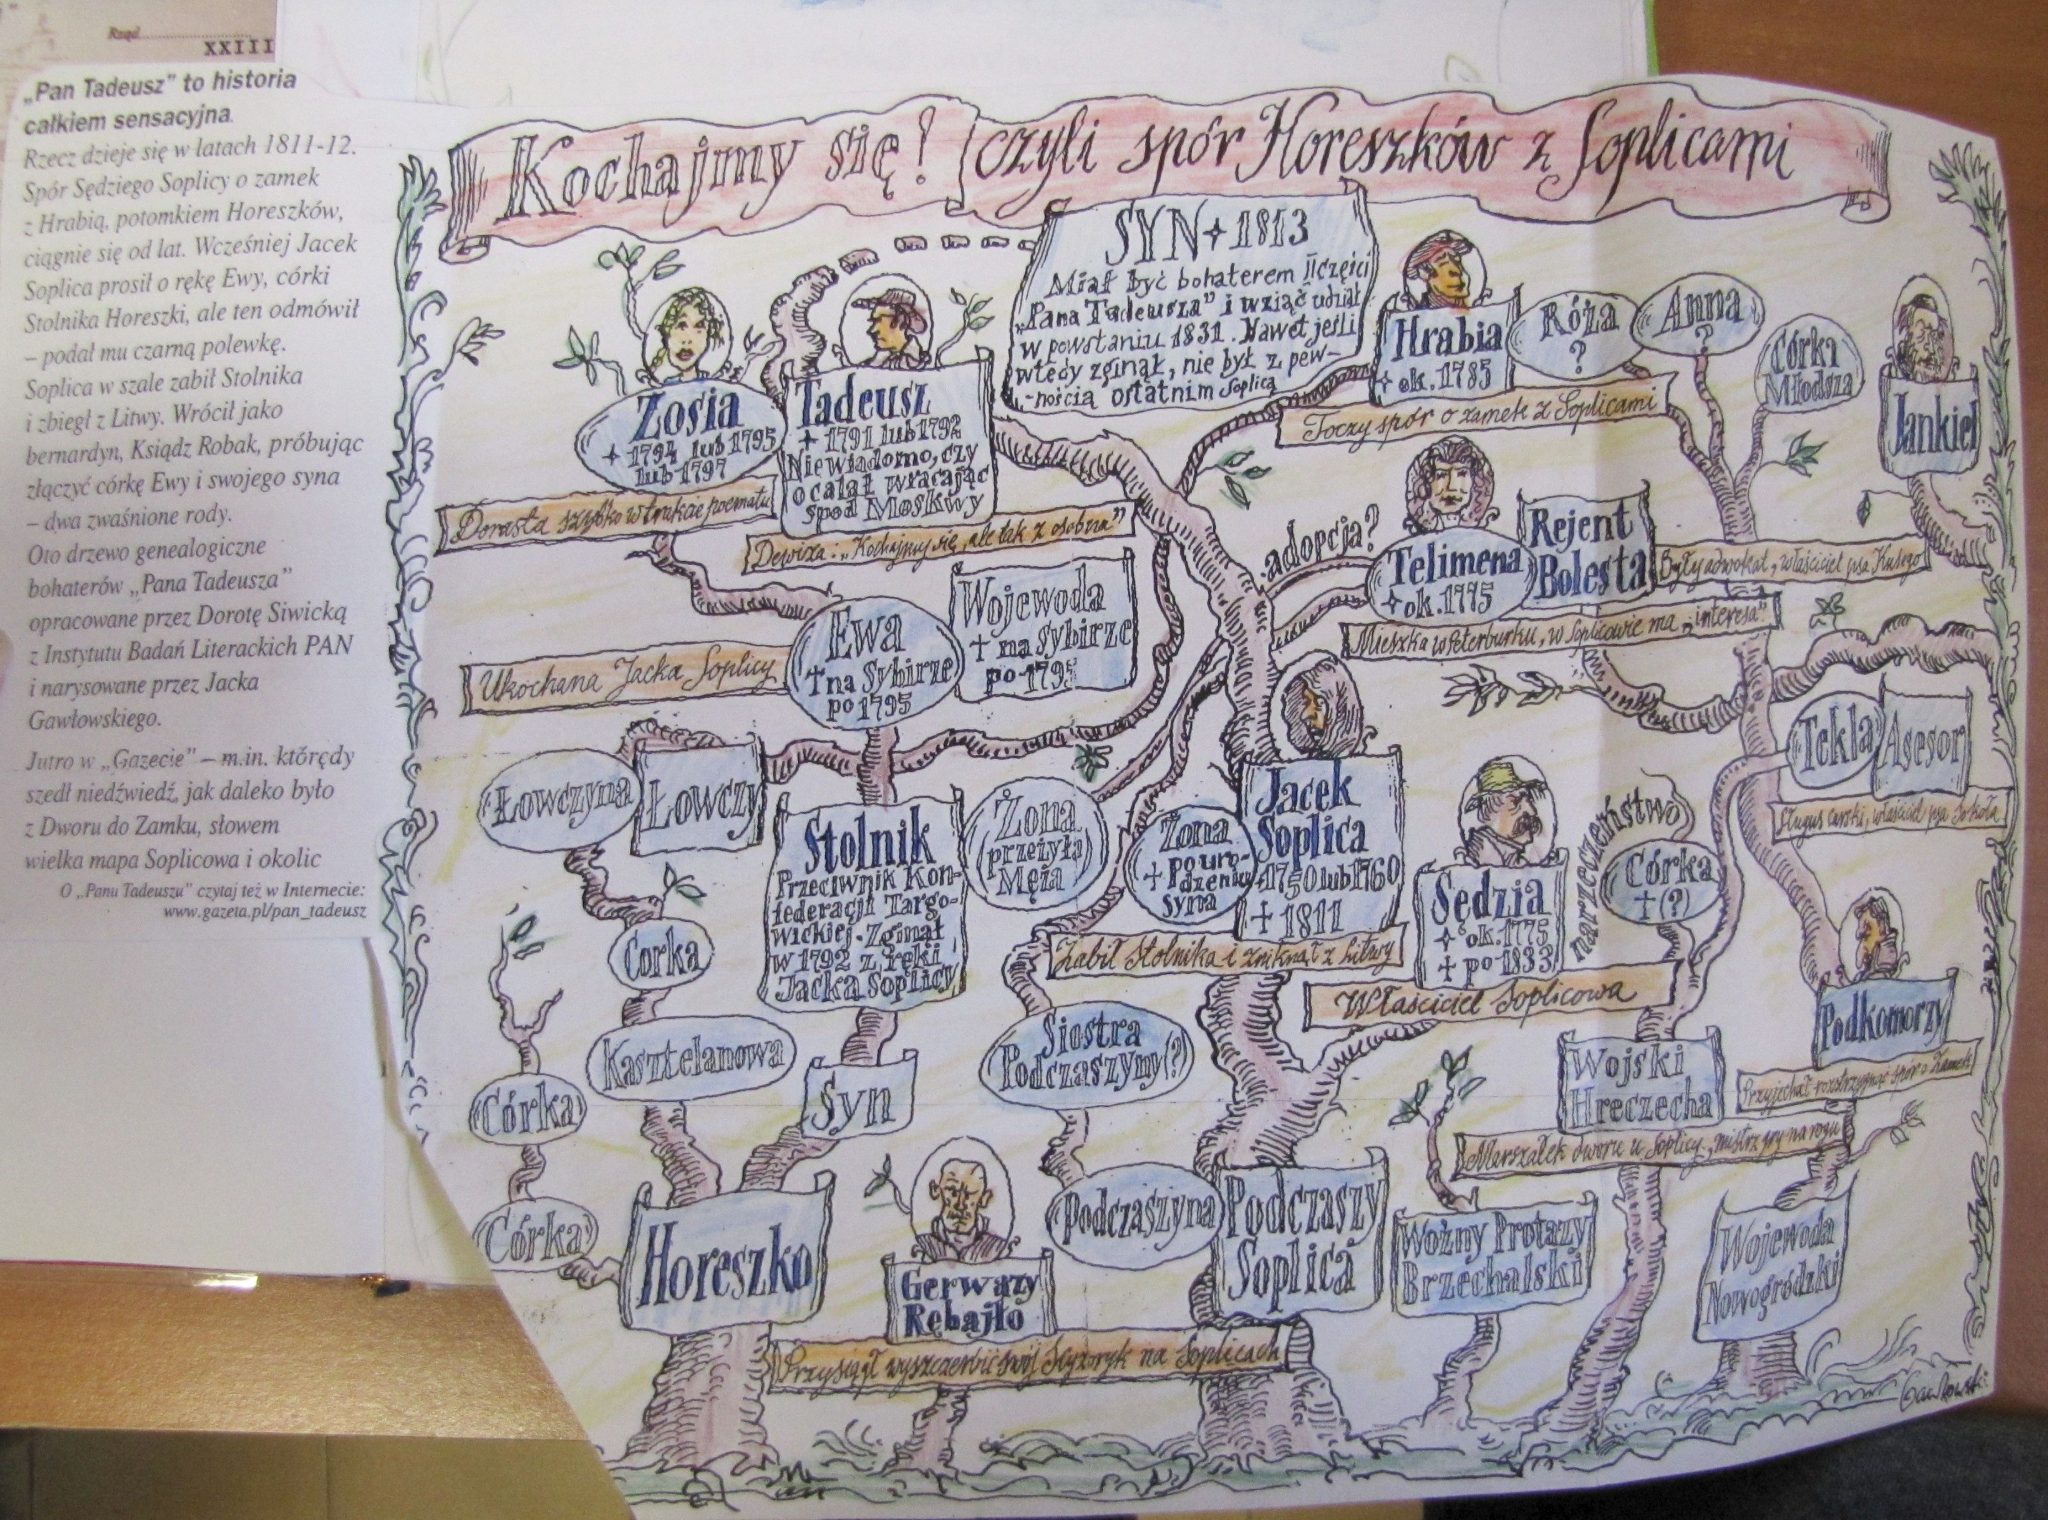 Rząd
XXIII
„Pan Tadeusz” to historia
całkiem sensacyjna.
Rzecz dzieje się w latach 1811-12.
Spór Sędziego Soplicy o zamek
z Hrabią, potomkiem Horeszków,
ciągnie się od lat. Wcześniej Jacek
Soplica prosił o rękę Ewy, córki
Stolnika Horeszki, ale ten odmówił
– podał mu czarną polewkę.
Soplica w szale zabił Stolnika
i zbiegł z Litwy. Wrócił jako
bernardyn, Ksiądz Robak, próbując
złączyć córkę Ewy i swojego syna
– dwa zwaśnione rody.
Oto drzewo genealogiczne
bohaterów „Pana Tadeusza”
opracowane przez Dorotę Siwicką
z Instytutu Badań Literackich PAN
i narysowane przez Jacka
Gawłowskiego.
Jutro w „Gazecie” – m.in. którędy
szedł niedźwiedź, jak daleko było
z Dworu do Zamku, słowem
wielka mapa Soplicowa i okolic
O „Panu Tadeuszu” czytaj też w Internecie:
www.gazeta.pl/pan_tadeusz
Kochajmy się! czyli spór Horeszków z Soplicami
SYN + 1813
Miał być bohaterem II części
„Pana Tadeusza” i wziąć udział
w powstaniu 1831. Nawet jeśli
wtedy zginął, nie był z pew-
-nością ostatnim Soplicą
Hrabia
+ ok. 1785
Toczy spór o zamek z Soplicami
Róża
?
Anna
?
Córka
Młodsza
Jankiel
Zosia
+ 1794 lub 1795
lub 1797
Dorasta szybko w trakcie poematu
Tadeusz
+ 1791 lub 1792
Niewiadomo, czy
ocalał wracając
spod Moskwy
Dewiza: „Kochajmy się, ale tak z osobna”
adopcja?
Telimena
+ ok. 1775
Mieszka w Peterburku, w Soplicowie ma „interesa”
Rejent
Bolesta
Były adwokat, właściciel psa Kusego
Ewa
† na Sybirze
po 1795
Ukochana Jacka Soplicy
Wojewoda
† na Sybirze
po 1795
Tekla
Asesor
Sługus carski, właściciel psa Sokoła
Łowczyna
Łowczy
Stolnik
Przeciwnik Kon-
federacji Targo-
wickiej. Zginął
w 1792 z ręki
Jacka Soplicy
Żona
przeżyła
Męża
Żona
† po uro-
dzeniu
syna
Jacek
Soplica
+ 1750 lub 1760
† 1811
Zabił Stolnika i zniknął z Litwy
Sędzia
+ ok. 1775
† po 1833
Właściciel Soplicowa
narzeczeństwo
Córka
† (?)
Podkomorzy
Przyjechał rozstrzygnąć spór o Zamek
Corka
Kasztelanowa
Syn
Siostra
Podczaszyny(?)
Wojski
Hreczecha
Marszałek dworu u Soplicy, mistrz gry na rogu
Córka
Córka
Horeszko
Gerwazy
Rębajło
Przysiągł wyszczerbić swój Scyzoryk na Soplicach
Podczaszyna
Podczaszy
Soplica
Woźny Protazy
Brzechalski
Wojewoda
Nowogródzki
Gawłowski